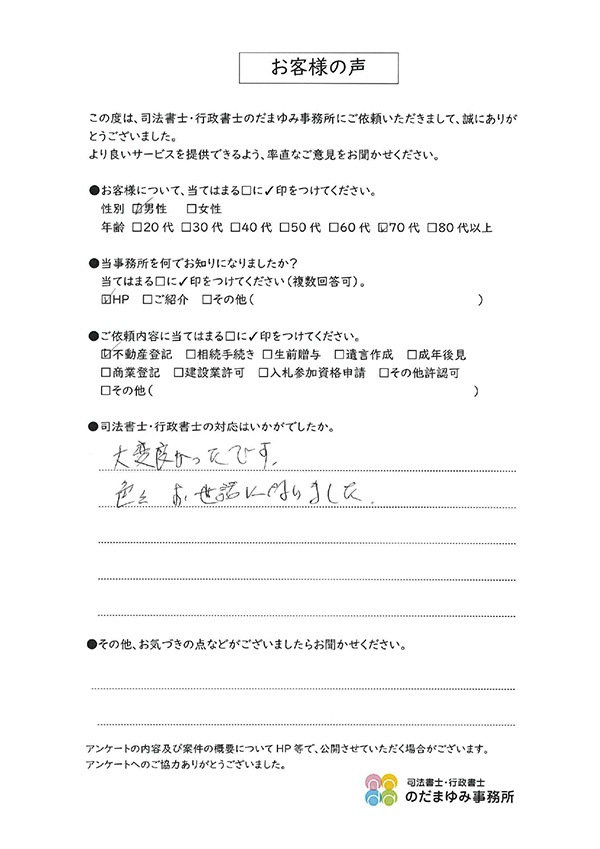 お客様の声
この度は、司法書士・行政書士のだまゆみ事務所にご依頼いただきまして、誠にありが
とうございました。
より良いサービスを提供できるよう、率直なご意見をお聞かせください。
●お客様について、当てはまる□に✓印をつけてください。
性別 ☑男性 □女性
年齢 □20代 □30代 □40代 □50代 □60代 ☑70代 □80代以上
●当事務所を何でお知りになりましたか?
当てはまる□に✓印をつけてください(複数回答可)。
☑HP □ご紹介 □その他( )
●ご依頼内容に当てはまる□に✓印をつけてください。
☑不動産登記 □相続手続き □生前贈与 □遺言作成 □成年後見
□商業登記 □建設業許可 □入札参加資格申請 □その他許認可
□その他( )
●司法書士・行政書士の対応はいかがでしたか。
大変良かったです。
色々お世話になりました。
●その他、お気づきの点などがございましたらお聞かせください。
アンケートの内容及び案件の概要についてHP等で、公開させていただく場合がございます。
アンケートへのご協力ありがとうございました。
司法書士・行政書士
のだまゆみ事務所